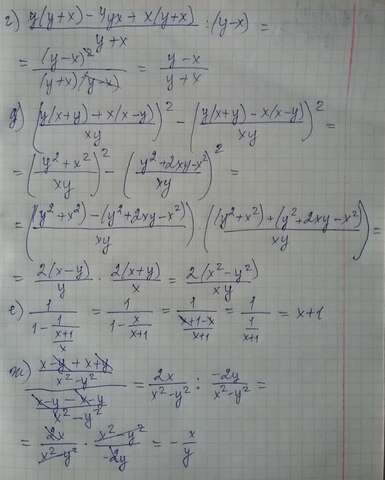 г) y(y+x) - 4yx + x(y+x) / y+x : (y-x) =
= (y-x)² / (y+x)(y-x) = y-x / y+x
д) (y(x+y) + x(x-y) / xy)² - (y(x+y) - x(x-y) / xy)² =
= (y²+x² / xy)² - (y²+2xy-x² / xy)² =
= ((y²+x²) - (y²+2xy-x²) / xy) · ((y²+x²) + (y²+2xy-x²) / xy) =
= 2(x-y) / y · 2(x+y) / x = 2(x²-y²) / xy
е) 1 / 1 - 1 / x+1 / x = 1 / 1 - x / x+1 = 1 / x+1-x / x+1 = 1 / 1 / x+1 = x+1
ж) x-y + x+y / x²-y² / x-y-x-y / x²-y² = 2x / x²-y² : -2y / x²-y² =
= 2x / x²-y² · x²-y² / -2y = - x / y